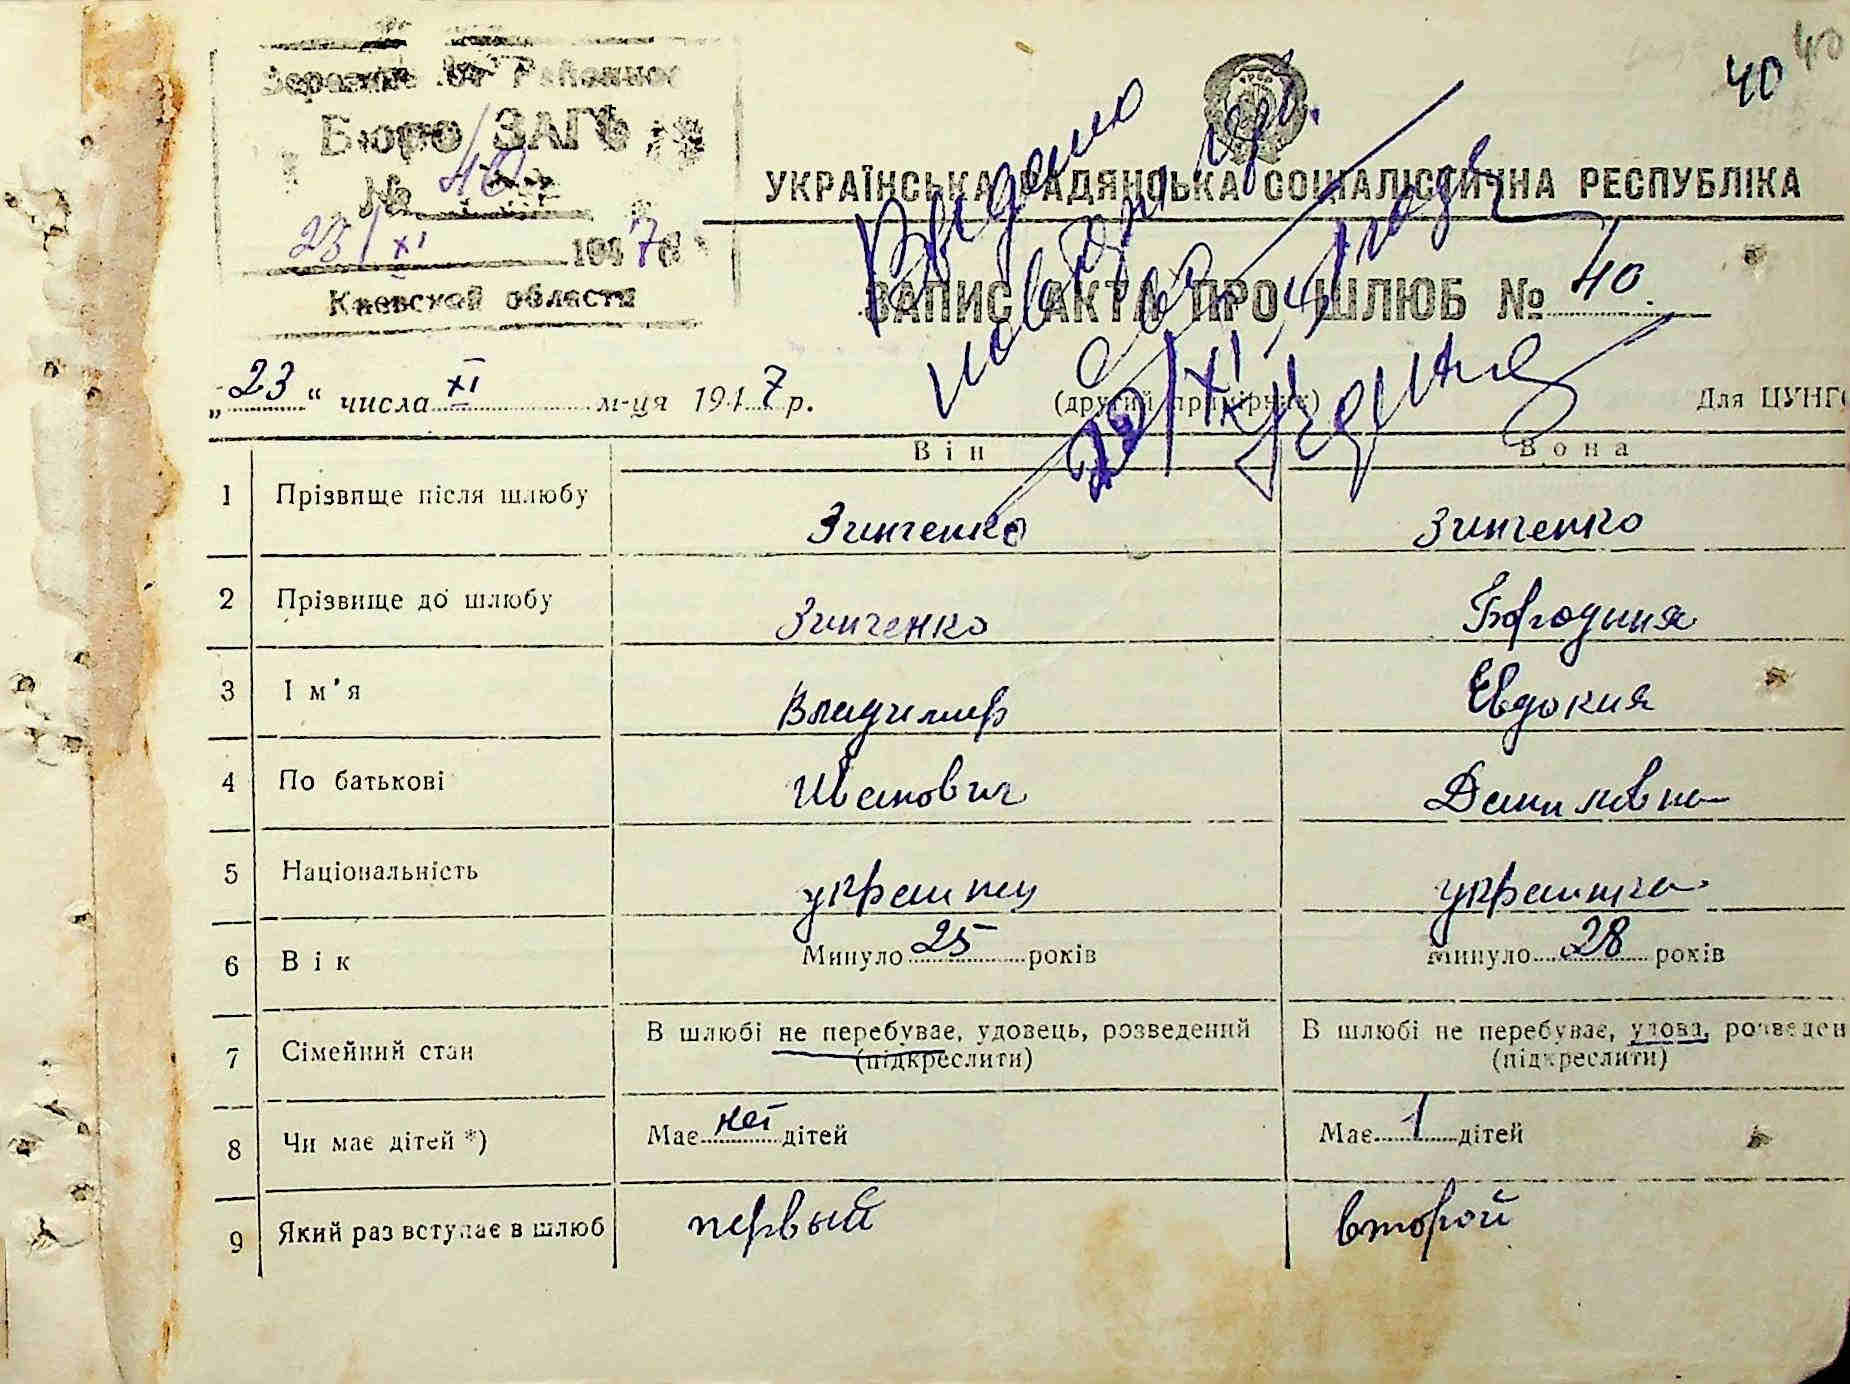 40 40
Бюро ЗАГС
№ 40
23/XI 1947 г.
Киевской области
УРСР
УКРАЇНСЬКА РАДЯНСЬКА СОЦІАЛІСТИЧНА РЕСПУБЛІКА
ЗАПИС АКТА ПРО ШЛЮБ № 40.
„23“ числа XI м-ця 1947 р.
(другий примірник)
Для ЦУНГО
Видано
23/XI
Він Вона
1 Прізвище після шлюбу Зинченко Зинченко
2 Прізвище до шлюбу Зинченко
3 Ім'я Владимир Евдокия
4 По батькові Иванович Даниловна
5 Національність украинец украинка
6 Вік Минуло 25 років Минуло 28 років
7 Сімейний стан В шлюбі не перебуває, удовець, розведений В шлюбі не перебуває, удова, розведен
(підкреслити) (підкреслити)
8 Чи має дітей *) Має нет дітей Має 1 дітей
9 Який раз вступає в шлюб первый второй